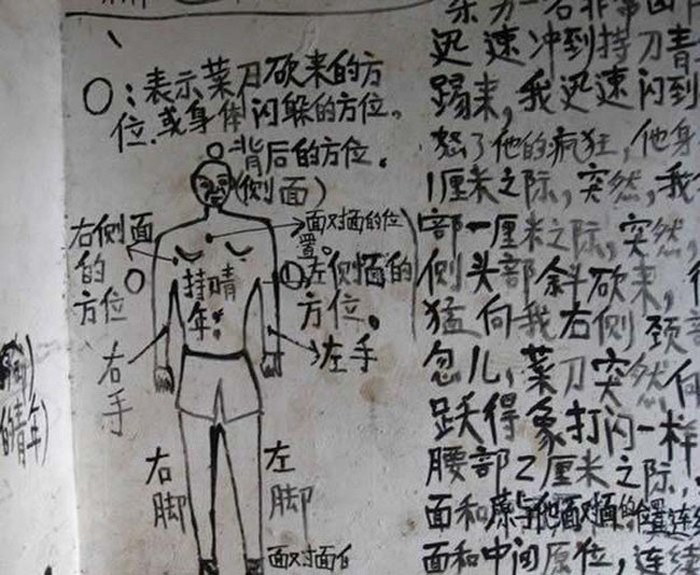 ○：表示菜刀砍来的方
位.或身体闪躲的方位。
背后的方位。
(侧面)
面对面的位
置。
右侧面
的
方位
左侧面的
方位。
持
年
右
手
左手
右
脚
左
脚
面对面
的青年)
迅速冲到持刀青
踢来,我迅速闪到
怒了他的疯狂,他身
1厘米之际,突然,我
部一厘米之际,突然
侧头部斜砍来,
猛向我右侧颈
忽儿,菜刀突然向
跃得象打闪一样
腰部2厘米之际,
面和 与他面对面的位置连
面和中间原位,连续